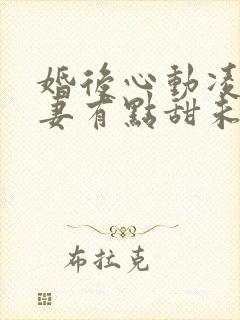 婚後心動凌
妻有點甜未
布拉克